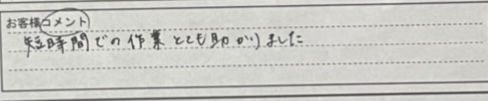 お客様コメント
短時間での作業とても助かりました